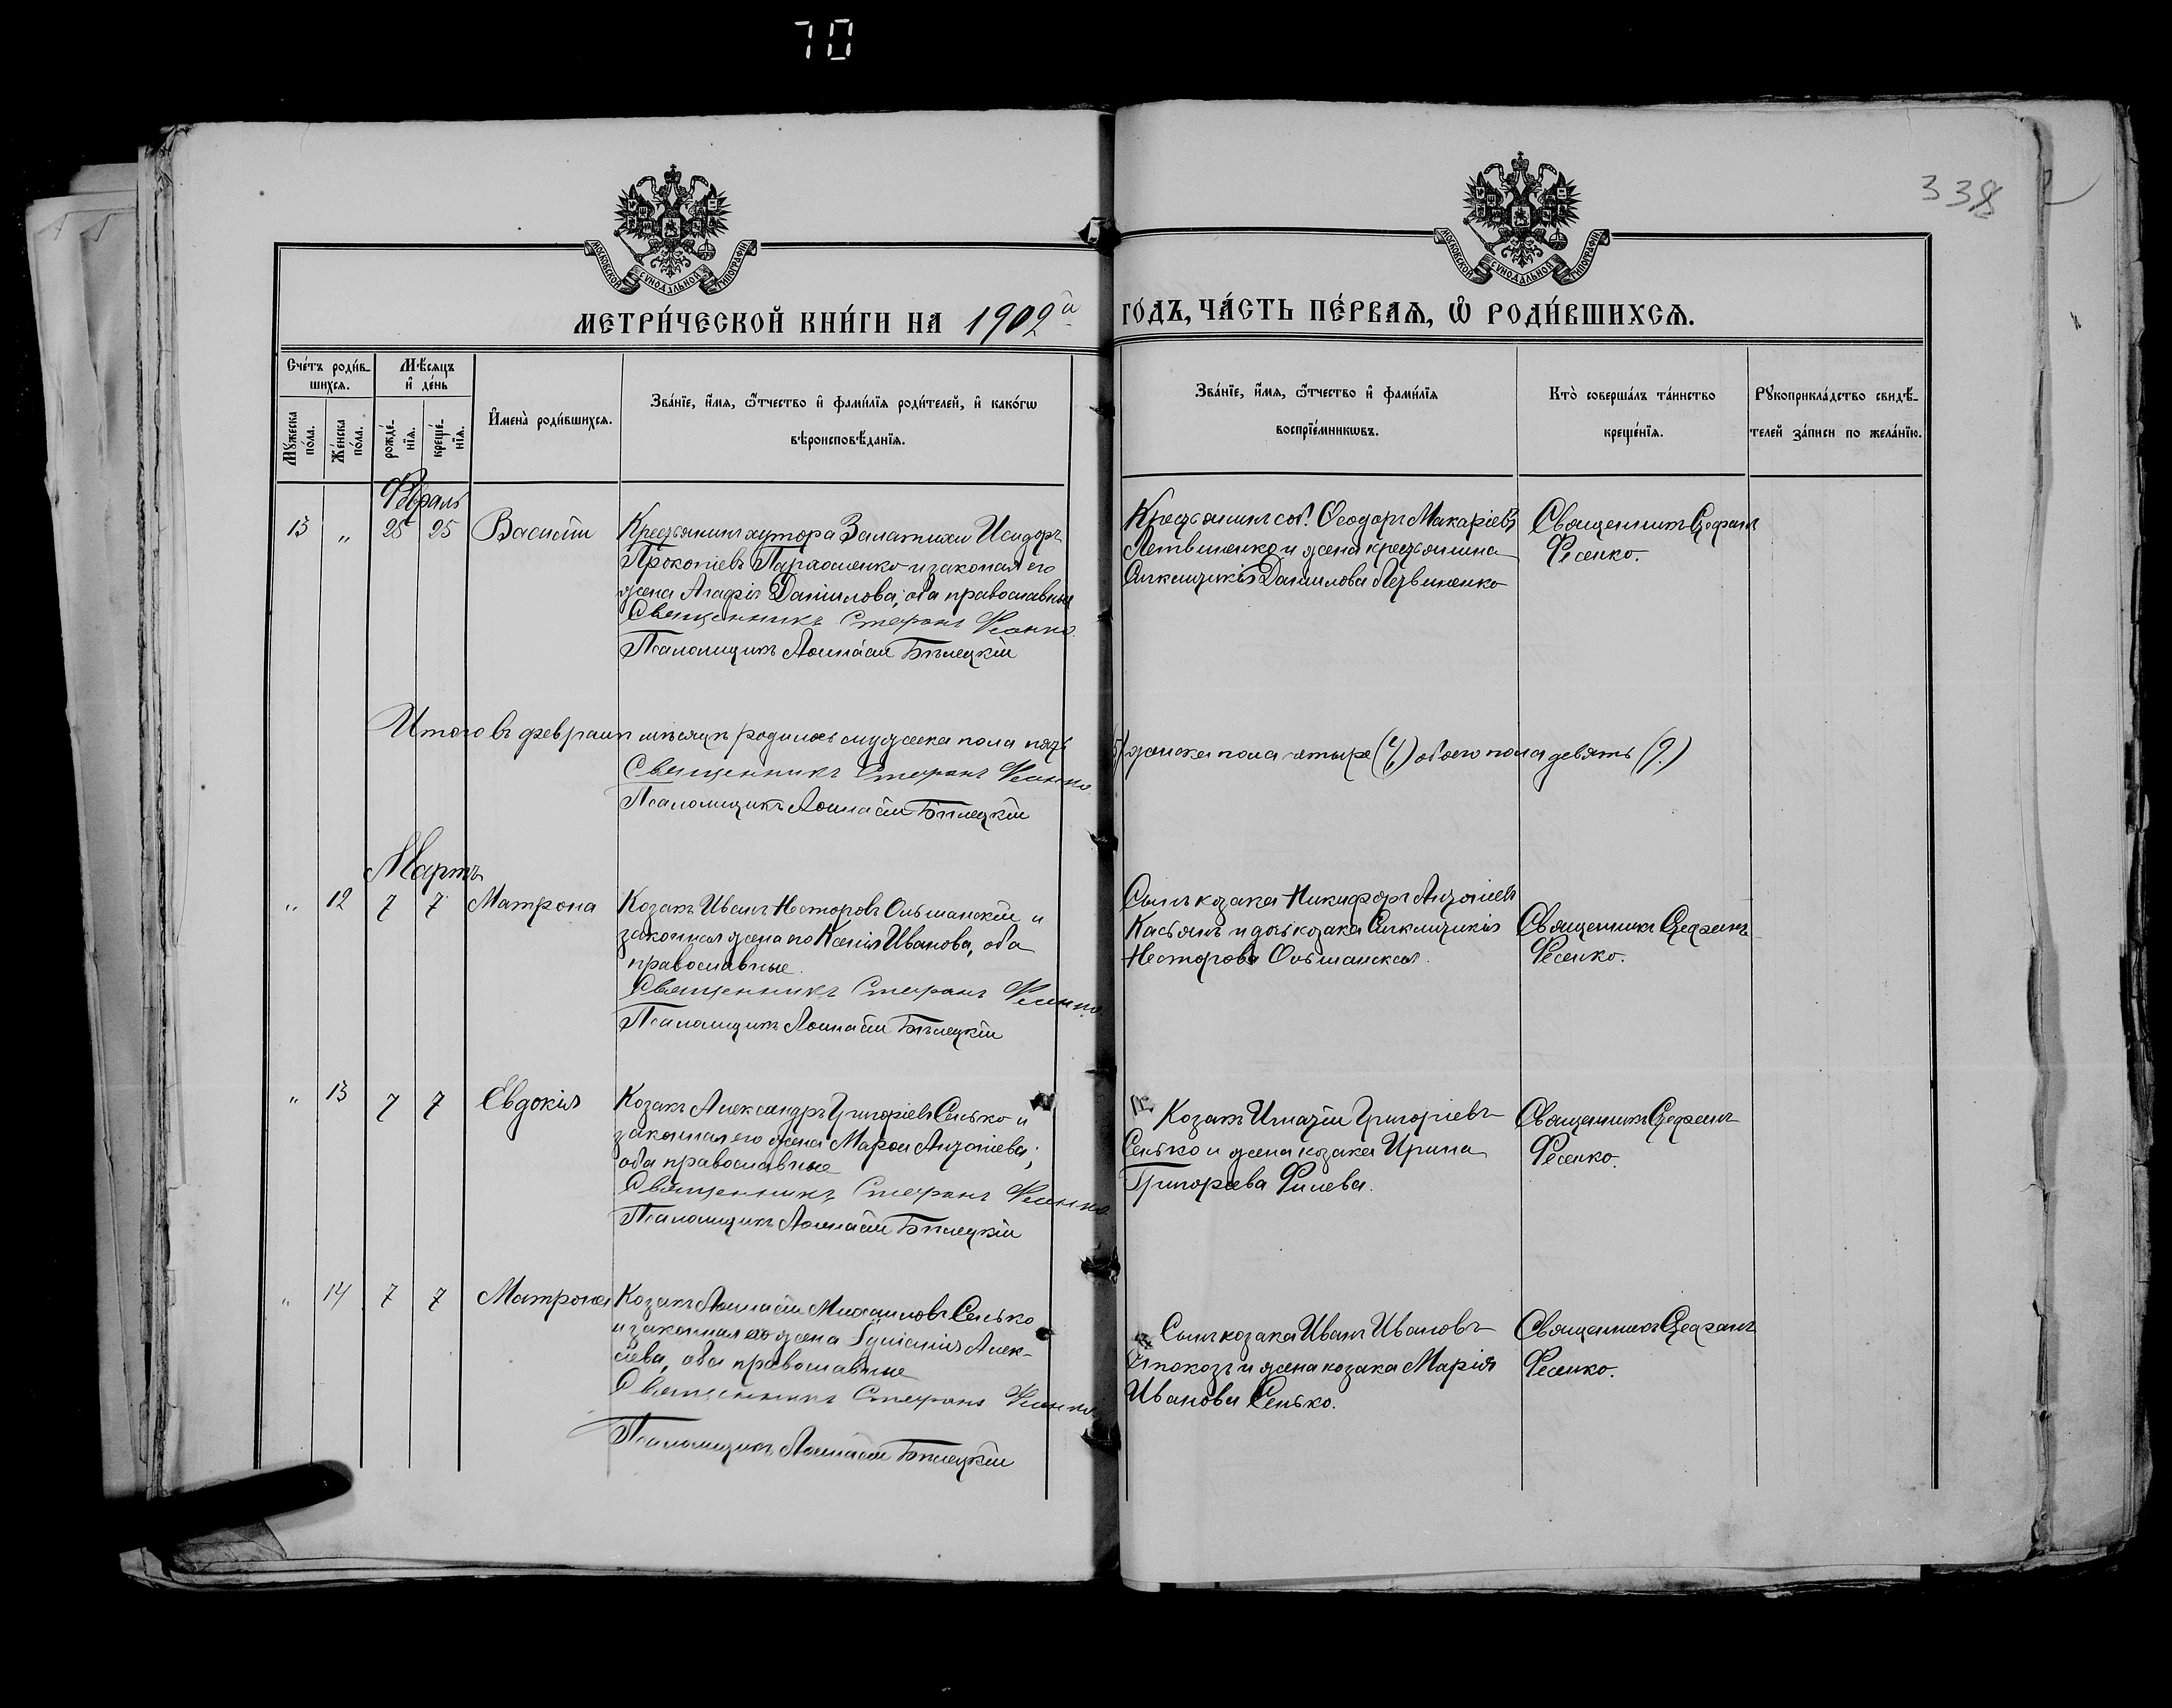 70
338
МОСКОВСКОЙ СѴНОДАЛЬНОЙ ТИПОГРАФІИ
МОСКОВСКОЙ СѴНОДАЛЬНОЙ ТИПОГРАФІИ
МЕТРИ́ЧЕСКОЙ КНИ́ГИ НА 1902й ГО́ДЪ, ЧА́СТЬ ПЕ́РВАѦ, Ѡ҆ РОДИ́ВШИХСѦ.
Сче́тъ роди́в-
шихсѧ.
Мѣ́сѧцъ
и҆ де́нь
Мꙋ́жеска
по́ла.
Же́нска
по́ла.
рожде́-
нїѧ.
креще́-
нїѧ.
И҆мена̀ роди́вшихсѧ.
Зва́нїе, и҆́мѧ, ѻ҆́тчество и҆ фами́лїѧ роди́телей, и҆ како́гѡ
вѣроисповѣ́данїѧ.
Зва́нїе, и҆́мѧ, ѻ҆́тчество и҆ фами́лїѧ
воспрїе́мникѡвъ.
Кто̀ соверша́лъ та́инство
креще́нїѧ.
Рꙋкоприкла́дство свидѣ́-
телей за́писи по жела́нїю.
Февраль
13 „ 25 25 Василій
Крестьянинъ хутора Исидоръ
Прокопіевъ Пархоменко и законная его
жена Агафія Даніилова, оба православные
Священникъ Стефанъ Фесенко.
Псаломщикъ Аѳанасій Бѣлецкій
Крестьянинъ соб. Ѳеодоръ Макаріевъ
Литвиненко и жена крестьянина
Гликерія Даніилова Литвиненко
Священникъ Стефанъ
Фесенко.
Итого въ февралѣ мѣсяцѣ родилось мужеска пола пять (5) женска пола четыре (4) обоего пола девять (9.)
Священникъ Стефанъ Фесенко.
Псаломщикъ Аѳанасій Бѣлецкій
Мартъ
„ 12 7 7 Матрона
Козакъ Иванъ Несторовъ Ольшанскій и
законная жена его Ксенія Иванова, оба
православные.
Священникъ Стефанъ Фесенко.
Псаломщикъ Аѳанасій Бѣлецкій
Сынъ козака Никифоръ Антоніевъ
Касьянъ и дочь козака
Несторова Ольшанская.
Священникъ Стефанъ
Фесенко.
„ 13 7 7 Евдокія
Козакъ Александръ Григоріевъ Сенько и
законная его жена Марѳа Антоніева,
оба православные
Священникъ Стефанъ Фесенко.
Псаломщикъ Аѳанасій Бѣлецкій
Козакъ Игнатій Григоріевъ
Сенько и жена козака Ирина
Григорьева
Священникъ Стефанъ
Фесенко.
„ 14 7 7 Матрона
Козакъ Аѳанасій Михаиловъ Сенько
и законная его жена Іуліанія Алек-
сѣева, оба православные
Священникъ Стефанъ Фесенко.
Псаломщикъ Аѳанасій Бѣлецкій
Сынъ козака Иванъ Ивановъ
и жена козака Марія
Иванова Сенько.
Священникъ Стефанъ
Фесенко.